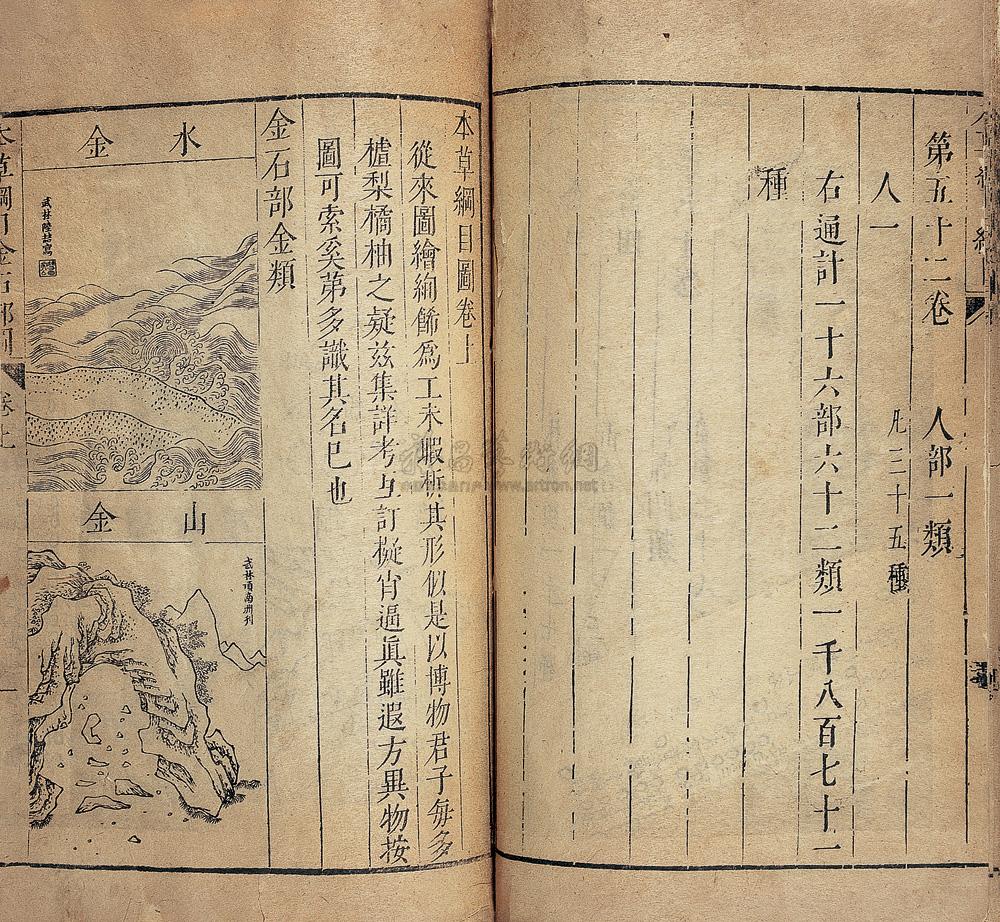 第五十二卷　人部一類
人一　凡三十五種
右通計一十六部六十二類一千八百七十一
種
本草綱目圖卷上
從來圖繪絢餙爲工未暇析其形似是以博物君子每多
樝梨橘柚之疑兹集詳考互訂擬肖逼眞雖遐方異物按
圖可索奚苐多識其名已也
金石部金類
水金
武林陸喆寫
山金
武林項南洲刋
本草綱目金石部圖　卷上　一
www.artron.net